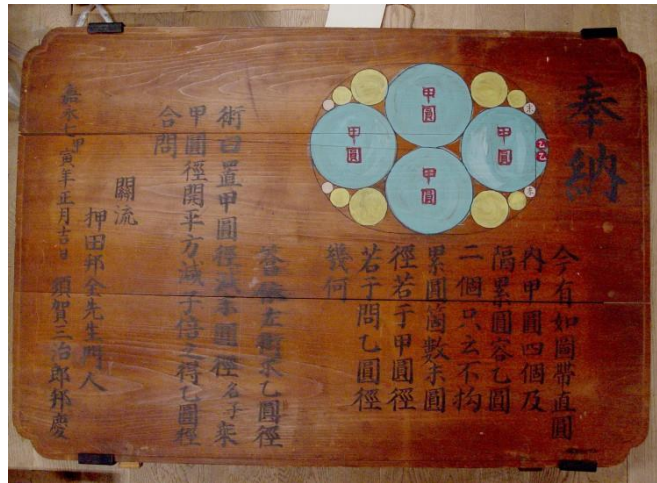 奉納
甲圓
甲圓
甲圓
甲圓
乙
乙
今有如圖帶直圓
内甲圓四個及
隔累圓容乙圓
二個只云不拘
累圓箇數末圓
徑若干甲圓徑
若干問乙圓徑
幾何
答依左術求乙圓徑
術曰置甲圓徑減末圓徑名子乗
甲圓徑開平方減子倍之得乙圓徑
合問
關流
押田邦全先生門人
嘉永七甲寅年正月吉日 須賀三治郎邦慶